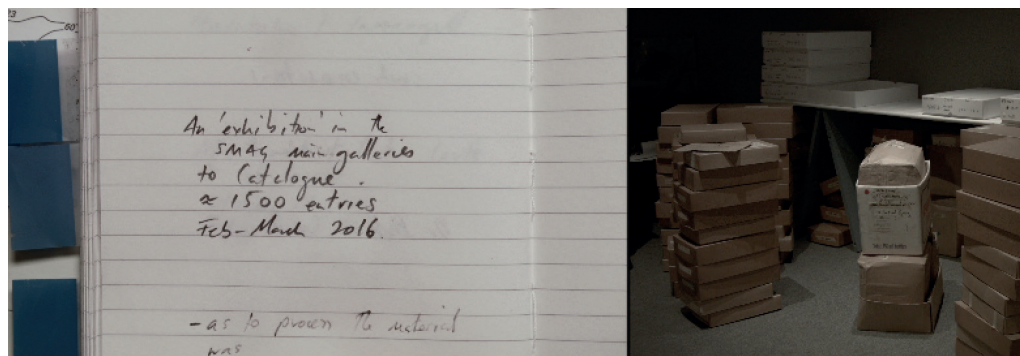 An 'exhibition' in the
SMAG main galleries
to Catalogue.
≈ 1500 entries
Feb-March 2016.
- as to the material
was
60